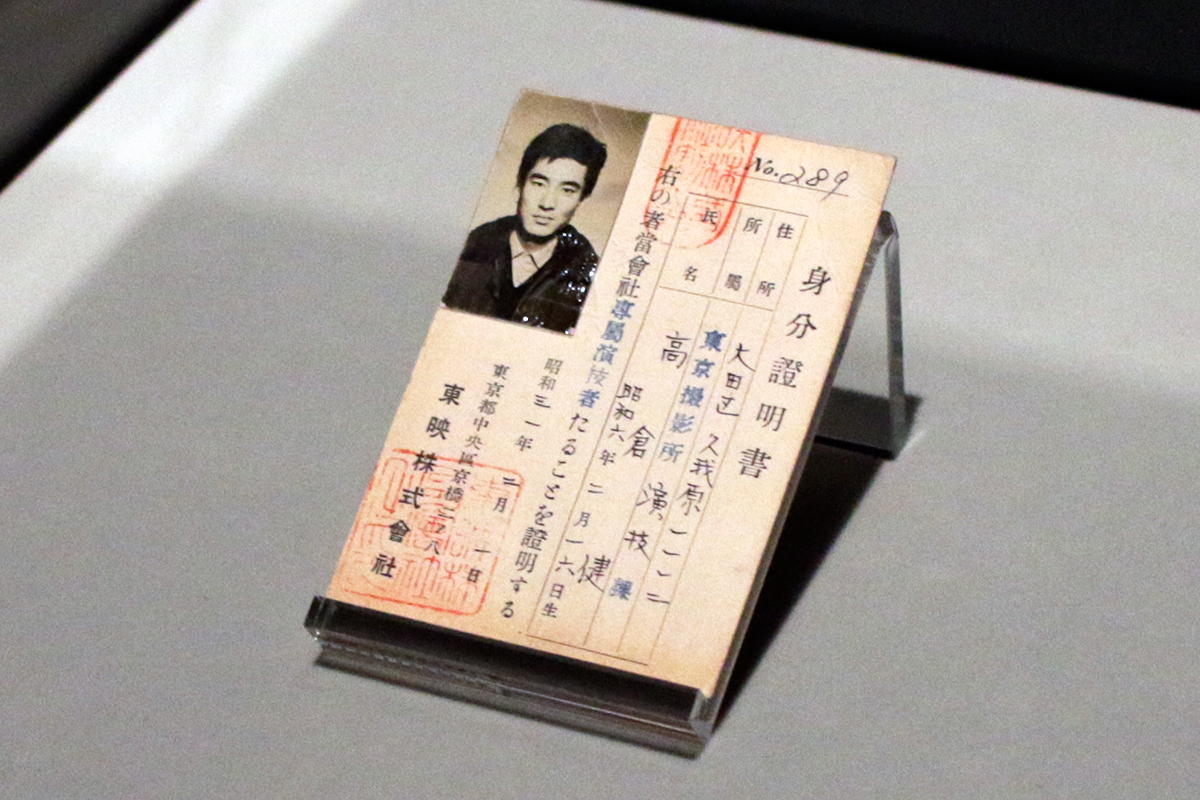 No.289
身分證明書
住所 大田区久我原一一一二
所屬 東京撮影所 演技課
氏名 高倉健
昭和六年二月一六日生
右の者當會社専屬演技者たることを證明する
昭和三一年二月一日
東京都中央區京橋二ノ八
東映株式會社